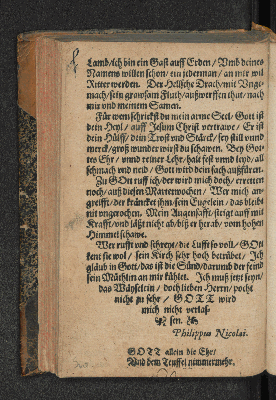 Lamb/ich bin ein Gast auff Erden / Vmb deines
Namens willen schon / ein jederman / an mir wil
Ritter werden. Der Hellsche Drach/mit Vnge-
mach/sein grawsam Fluth/außwerffen thut/nach
mir vnd meinem Samen.
Für wem schrickstu mein arme Seel/Gott ist
dein Heyl / auff Jesum Christ vertrawe / Er ist
dein Hülff/ dein Trost vnd Stärck/ sey still vnnd
merck/groß wunder wirst du schawen. Bey Got-
tes Ehr/ vnnd reiner Lehr/halt fest vnnd leyd/all
schmach vnd neid/Gott wird dein sach außführen.
Zu GOtt ruff ich/der wird mich doch/erretten
noch/auß diesen Marterwochen / Wer mich an-
greifft/der kräncket jhm/sein Eugelein/das bleibt
nit vngerochen. Mein Augensafft/steigt auff mit
Krafft/vnd läßt nicht ab/biß er herab/vom hohen
Himmel schawe.
Wer rufft vnd schreyt/ die Lufft so voll/GOtt
kent sie wol / sein Kirch sehr hoch betrübet/ Ich
glaub in Gott/das ist die Sünd/darumb der feind
sein Mütlein an mir kühlet. Ich muß jetzt seyn/
das Wäyselein / doch lieben Herrn/pocht
nicht zu sehr / GOTT wird
mich nicht verlas-
sen.
Philippus Nicolai.
GOTT allein die Ehr/
Vnd dem Teuffel nimmermehr.